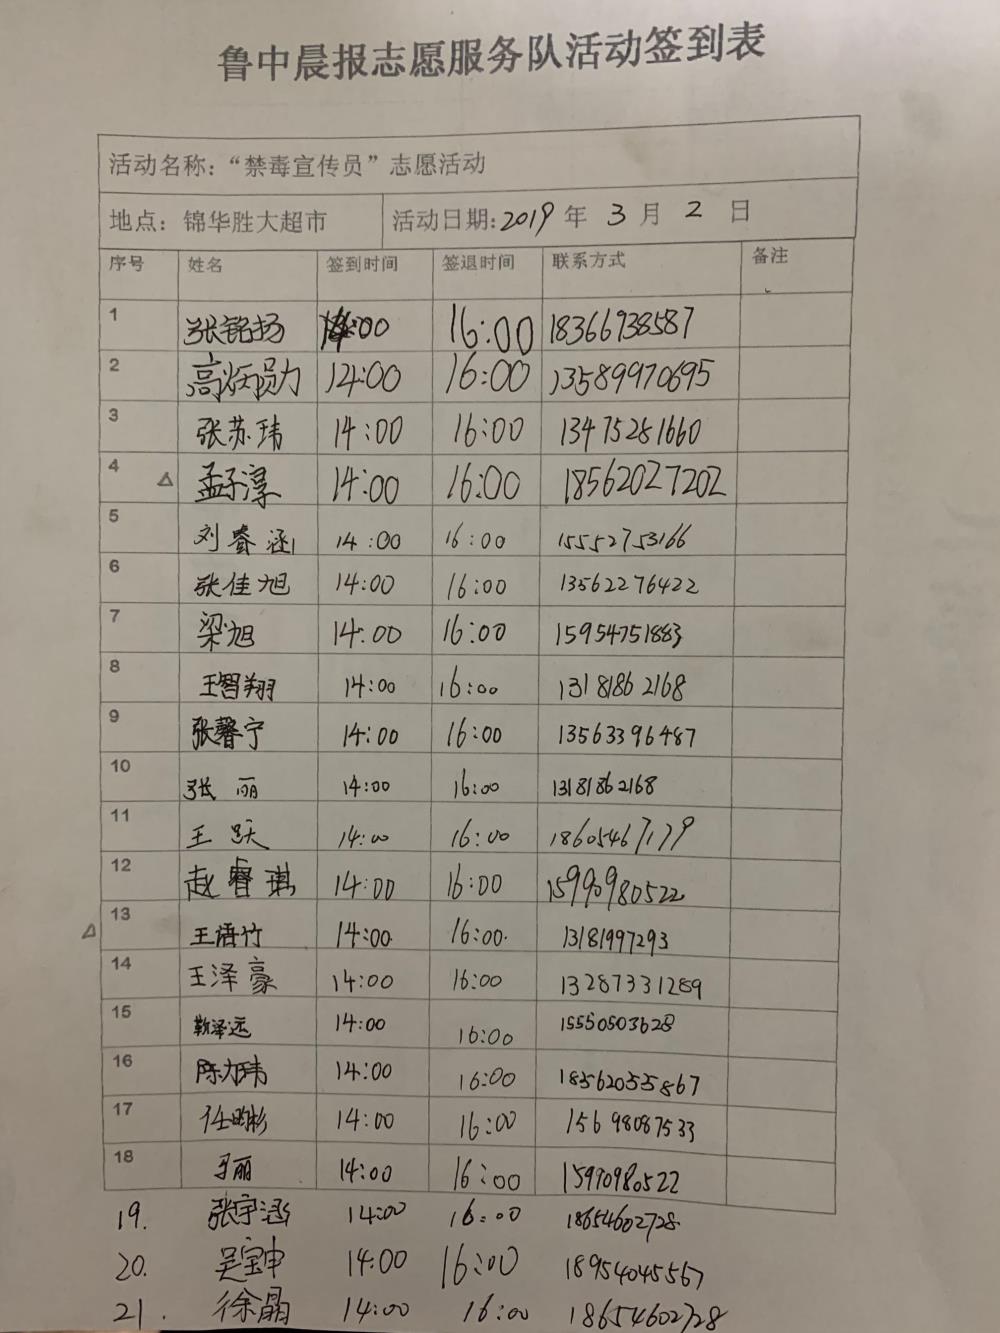 鲁中晨报志愿服务队活动签到表
活动名称：“禁毒宣传员”志愿活动
地点：锦华胜大超市 活动日期：2019 年 3 月 2 日
序号 姓名 签到时间 签退时间 联系方式 备注
1 张铭扬 14:00 16:00 18366938587
2 高炳员力 14:00 16:00 13589970695
3 张苏玮 14:00 16:00 13475281660
4 △ 孟子淳 14:00 16:00 18562027202
5 刘睿涵 14:00 16:00 15552753166
6 张佳旭 14:00 16:00 13562276422
7 梁旭 14:00 16:00 15954751883
8 王智翔 14:00 16:00 13181862168
9 张馨宁 14:00 16:00 13563396487
10 张丽 14:00 16:00 13181862168
11 王跃 14:00 16:00 18605467179
12 赵睿琪 14:00 16:00 15990980522
△ 13 王语竹 14:00 16:00 13181997293
14 王泽豪 14:00 16:00 13287331289
15 靳泽远 14:00 16:00 15550503628
16 陈力玮 14:00 16:00 18562055867
17 任昀彬 14:00 16:00 15698087533
18 马丽 14:00 16:00 15990980522
19. 张宇涵 14:00 16:00 18654602728
20. 吴宝申 14:00 16:00 18954045567
21. 徐晶 14:00 16:00 18654602728